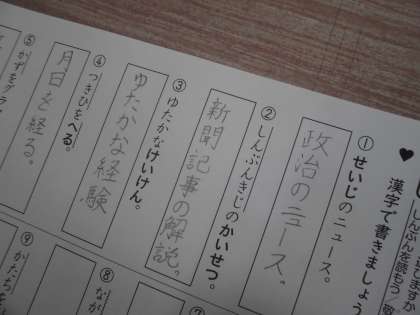 ♥ 漢字で書きましょう
① せいじのニュース。
政治のニュース。
② しんぶんきじのかいせつ。
新聞記事の解説。
③ ゆたかなけいけん。
ゆたかな経験
④ つきひをへる。
月日を経る。
⑤ かずをグラ
⑧ なが
⑨ かたちを